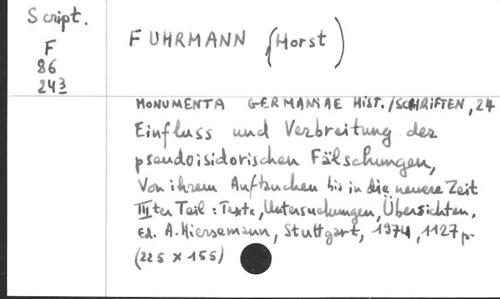 Script.
F
86
243
FUHRMANN (Horst)
MONUMENTA GERMANIAE HIST./SCHRIFTEN, 24
Einfluss und Verbreitung der
pseudoisidorischen Fälschungen,
Von ihrem Auftauchen bis in die neuere Zeit
IIIter Teil : Texte, Untersuchungen, Übersichten.
Ed. A. Hiersemann, Stuttgart, 1974, 1127 p.
(225 x 155)